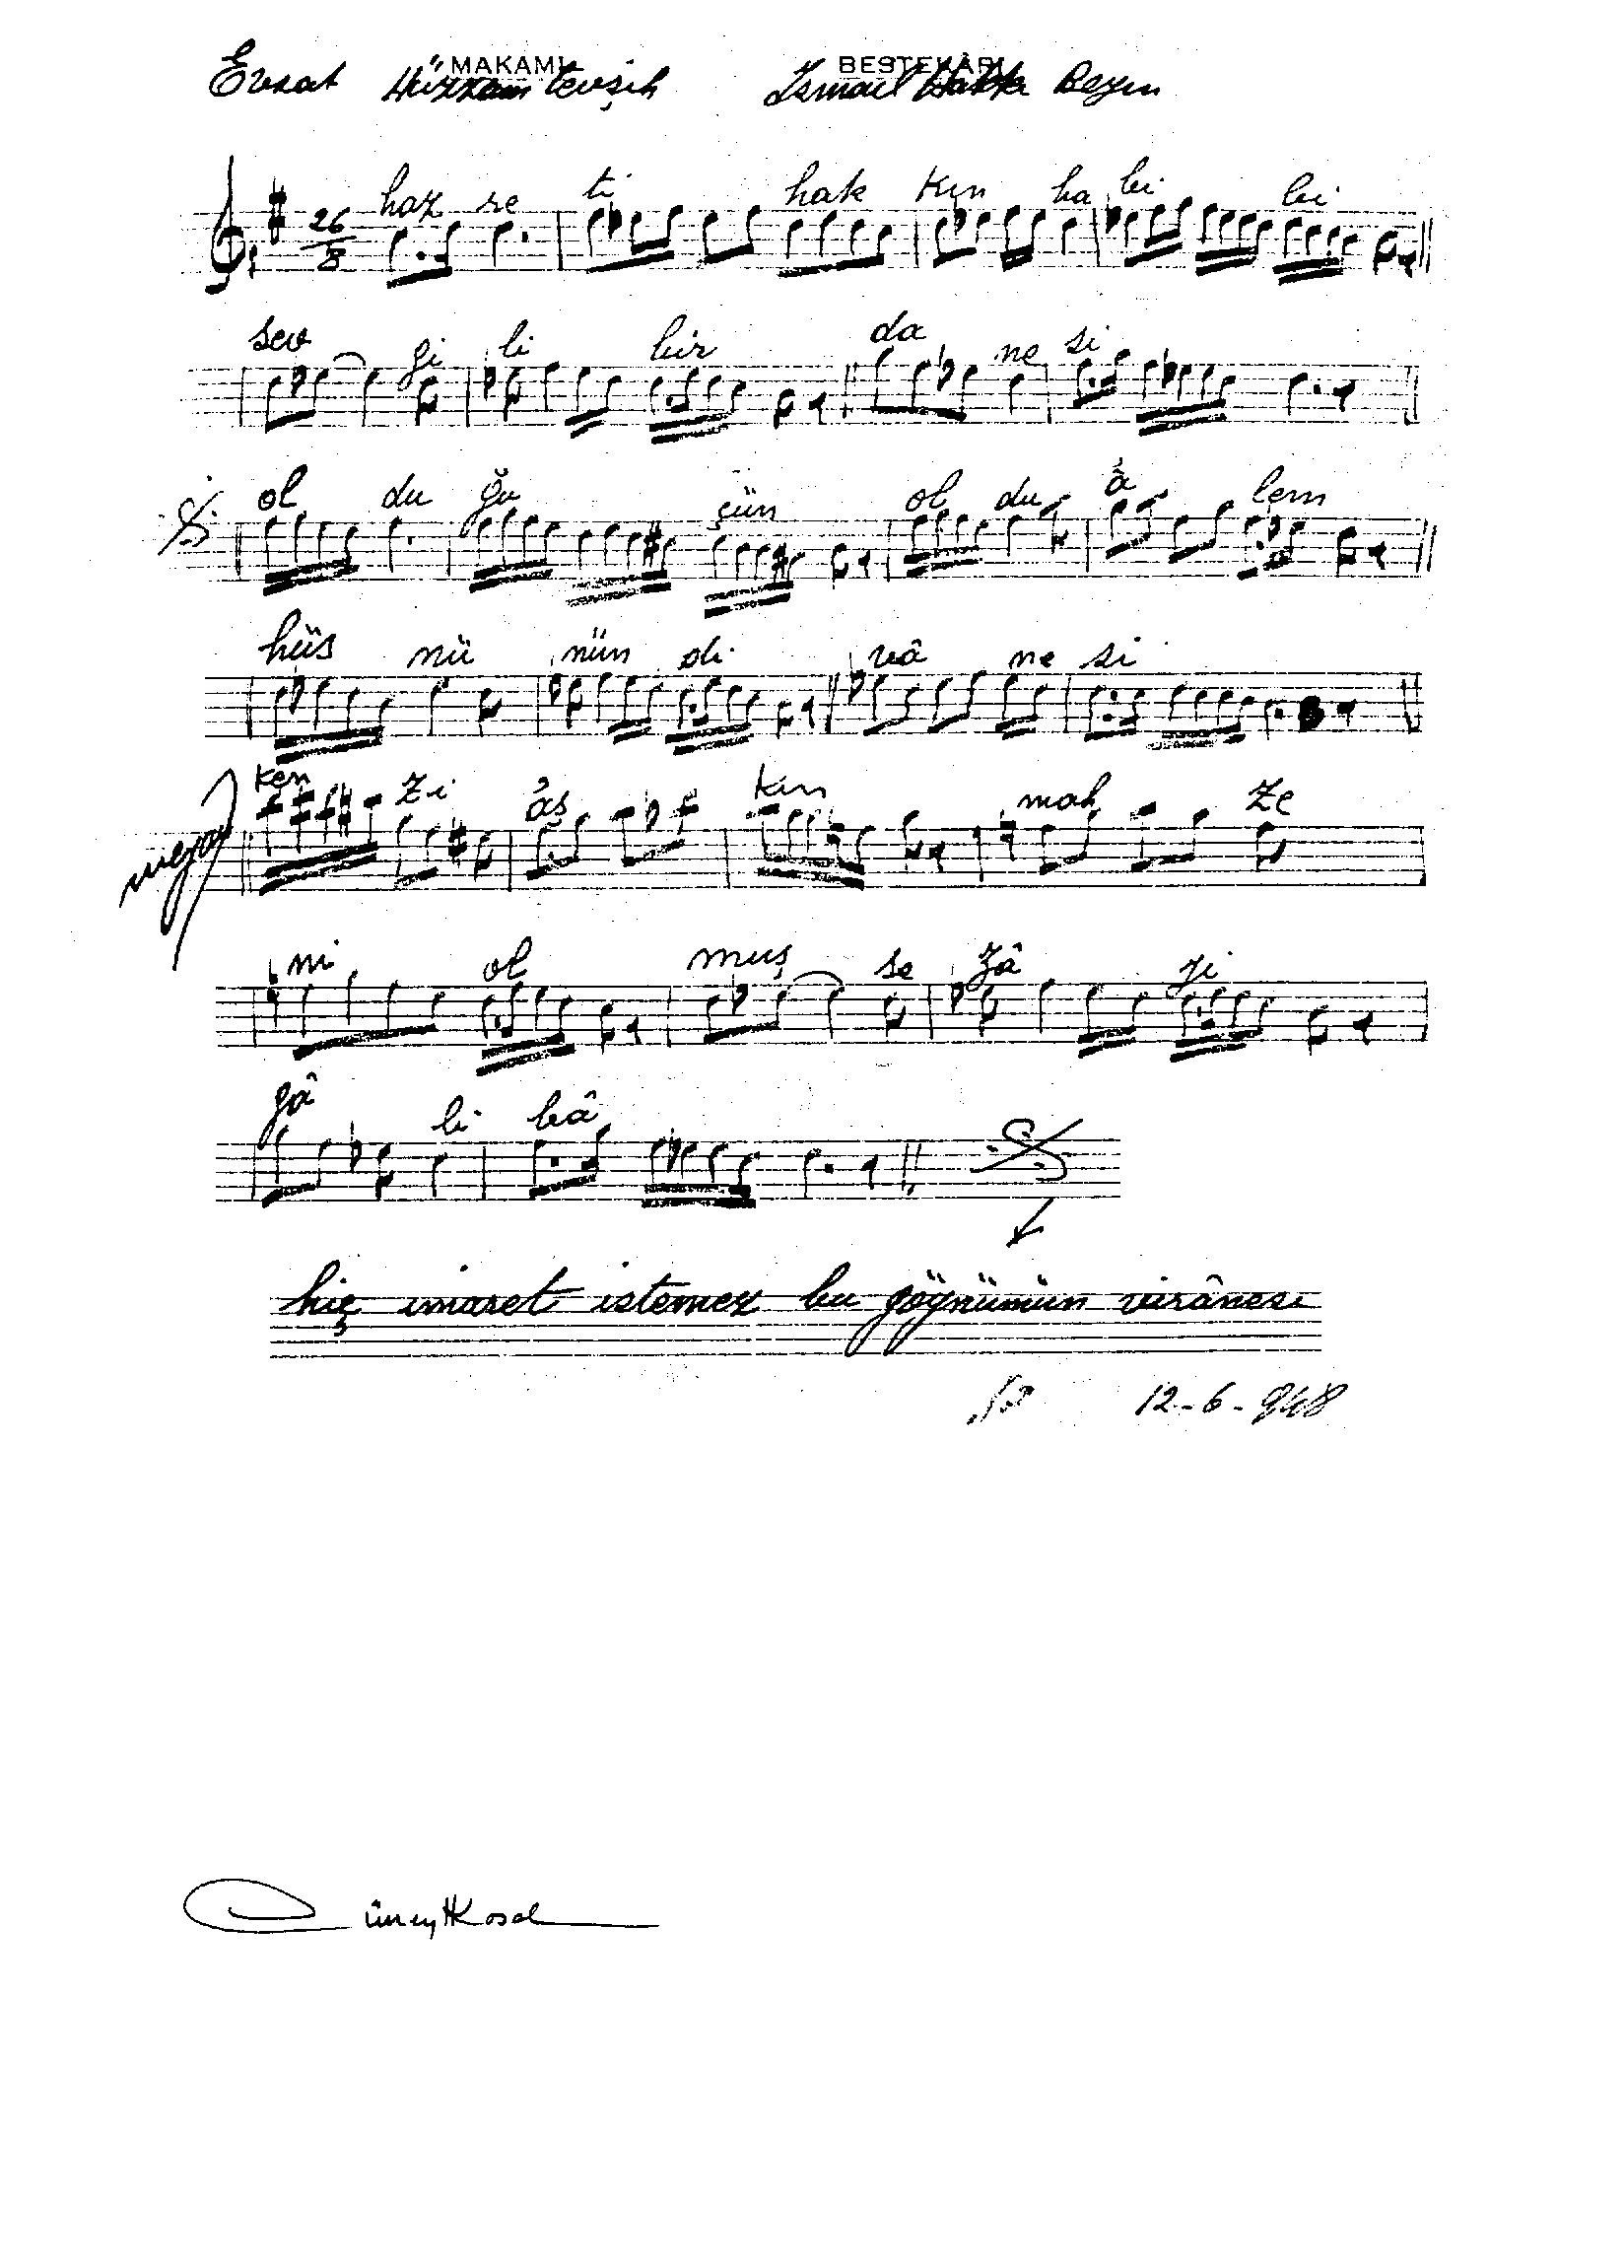 MAKAMI BESTEKÂRI
Evsat Hüzzam tevşih İsmail Hakkı Beyin
26
8
haz re ti hak kın ha bi bi
sev gi li bir da ne si
ol du ğu çün ol du â lem
hüs nü nün di vâ ne si
ken zi âş kın mah ze
meyan
ni ol muş se zâ yi
gâ li bâ
hiç imaret istemez bu göynümün virânesi
12-6-948
Cüneyt Kosal